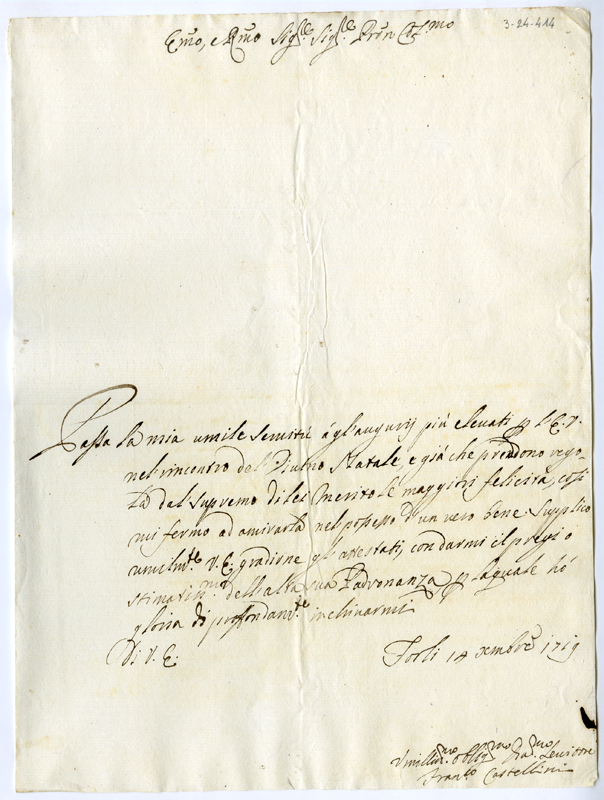 3-24-414
Emo, e Rmo Sigre Sigre Pron Col.mo
Passa la mia umile servitù à gl'augurij più elevati p l'E.V.
nel rincontro del Divino Natale, e già che prendono rego-
la dal supremo di lei Merito le maggiori felicità, così
mi fermo ad amirarla nel possesso d'un vero bene. Supplico
umilmte V.E. gradirne gl'attestati, con darmi il pregio
stimatissmo dell'alta sua Padronanza, p la quale hò
gloria di profondamte inchinarmi
Di V.E.
Forlì 14 xmbre 1719
Vmillmo Obligmo Servitore
Franco Castellini